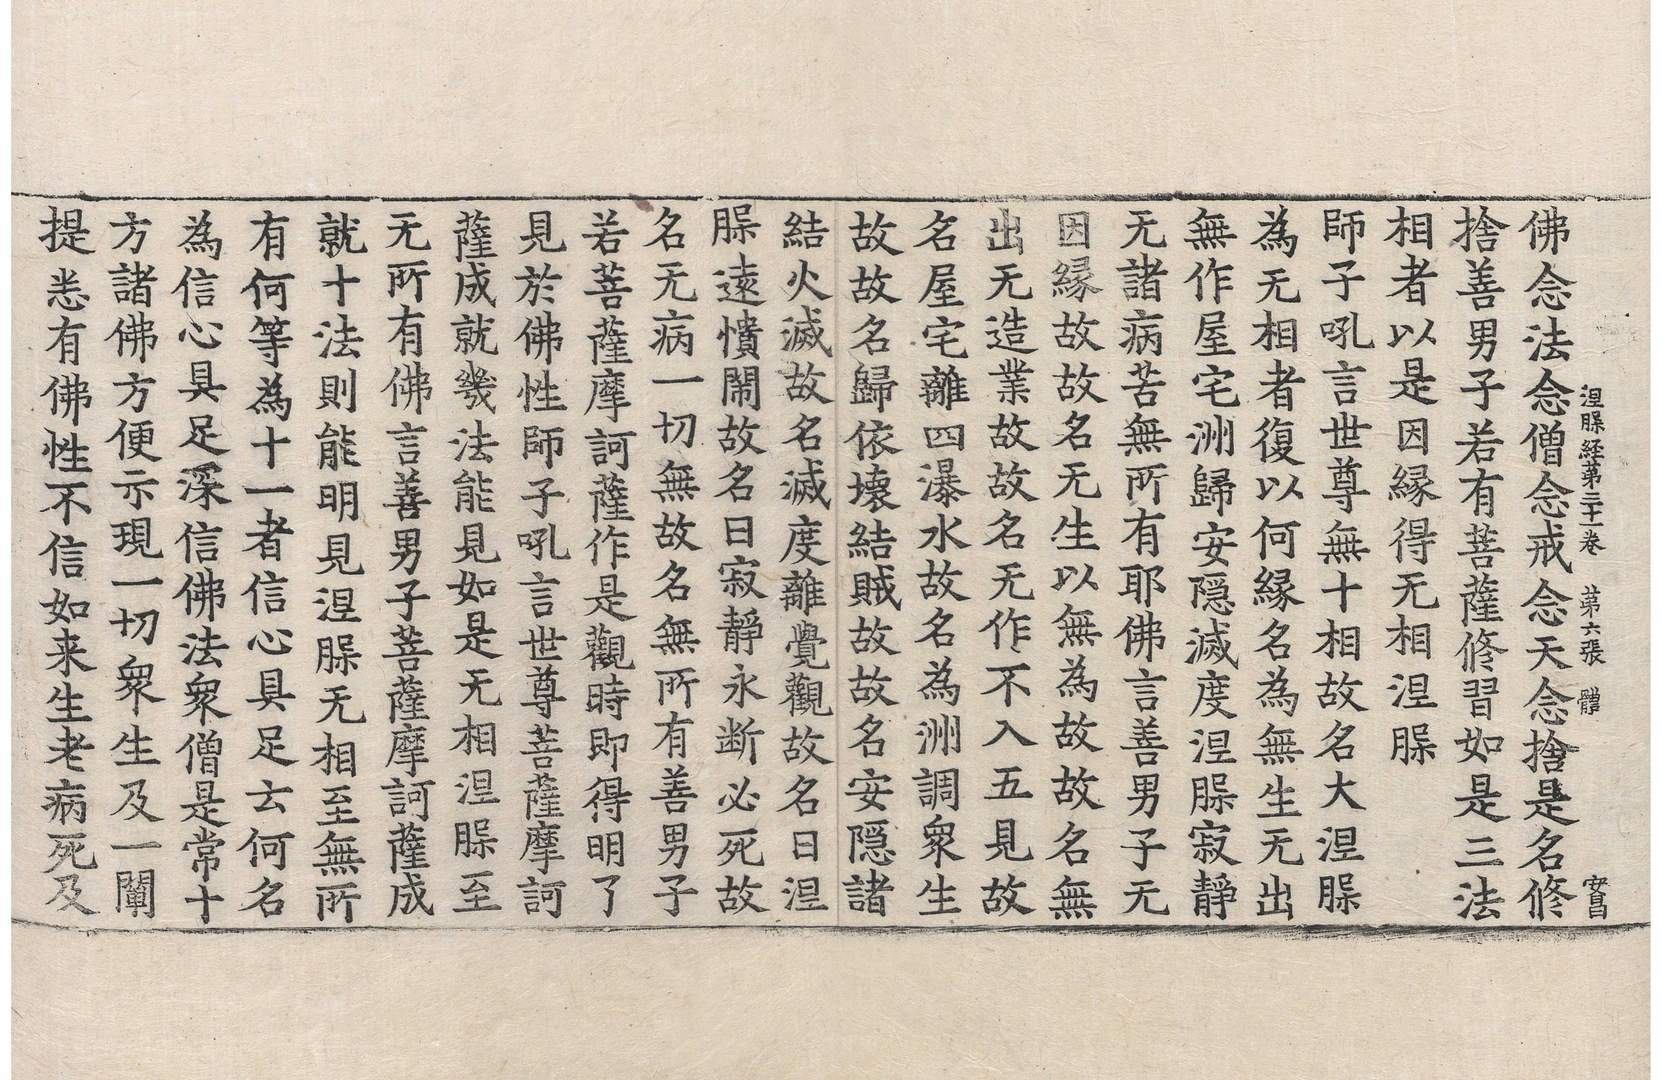 涅槃経第三十一卷　第六張　體　安昌
佛念法念僧念戒念天念捨是名修
捨善男子若有菩薩修習如是三法
相者以是因縁得无相涅槃
師子吼言世尊無十相故名大涅槃
為无相者復以何縁名為無生无出
無作屋宅洲歸安隠滅度涅槃寂靜
无諸病苦無所有耶佛言善男子无
因縁故故名无生以無為故故名無
出无造業故故名无作不入五見故
名屋宅離四瀑水故名為洲調衆生
故故名歸依壊結賊故故名安隠諸
結火滅故名滅度離覺觀故名曰涅
槃遠憒閙故名曰寂靜永断必死故
名无病一切無故名無所有善男子
若菩薩摩訶薩作是觀時即得明了
見於佛性師子吼言世尊菩薩摩訶
薩成就幾法能見如是无相涅槃至
无所有佛言善男子菩薩摩訶薩成
就十法則能明見涅槃无相至無所
有何等為十一者信心具足云何名
為信心具足深信佛法衆僧是常十
方諸佛方便示現一切衆生及一闡
提悉有佛性不信如来生老病死及